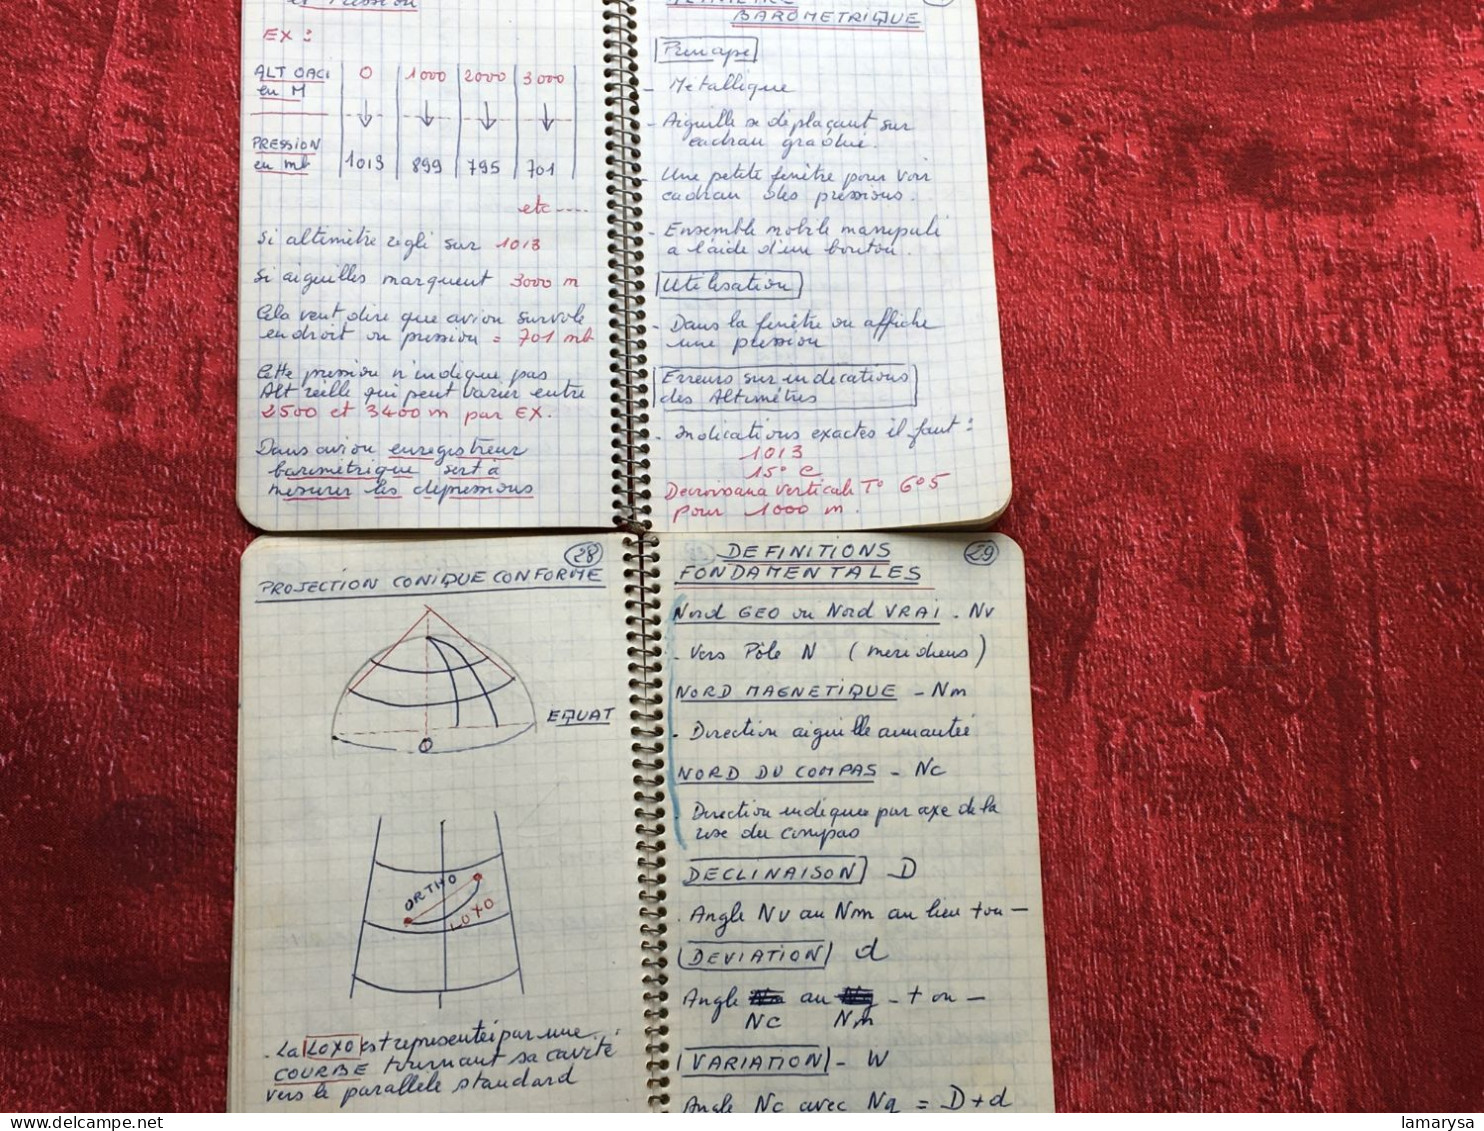 et Pression
EX :
ALT OACI
en M
0 1000 2000 3000
PRESSION
en mb
1013 899 795 701
etc ----
Si altimètre reglé sur 1013
Si aiguilles marquent 3000 m
Cela veut dire que avion survole
endroit ou pression = 701 mb
Cette pression n'indique pas
Alt réelle qui peut varier entre
2500 et 3400 m par EX.
Dans avion enregistreur
barométrique sert à
mesurer les depressions
BAROMETRIQUE
Principe
- Métallique
- Aiguille se déplaçant sur
cadran gradué.
- Une petite fenêtre pour voir
cadran des pressions.
- Ensemble mobile manipulé
a l'aide d'un bouton.
Utilisation
- Dans la fenêtre on affiche
une pression
Erreurs sur indications
des Altimétres
- Indications exactes il faut :
1013
15° C
verticale T° 6°5
pour 1000 m.
28
PROJECTION CONIQUE CONFORME
EQUAT
O
ORTHO
LOXO
- La LOXO est representée par une
COURBE tournant sa cavité
vers le parallele standard
29
DEFINITIONS
FONDAMENTALES
Nord GEO ou Nord VRAI - Nv
- Vers Pôle N (meridiens)
NORD MAGNETIQUE - Nm
- Direction aiguille aimantée
NORD DU COMPAS - Nc
- Direction indiquée par axe de la
rose du compas
DECLINAISON D
- Angle Nv au Nm au lieu + ou -
DEVIATION d
Angle au - + ou -
Nc Nm
VARIATION - W
Angle Nc avec Ng = D+d
lamarysa